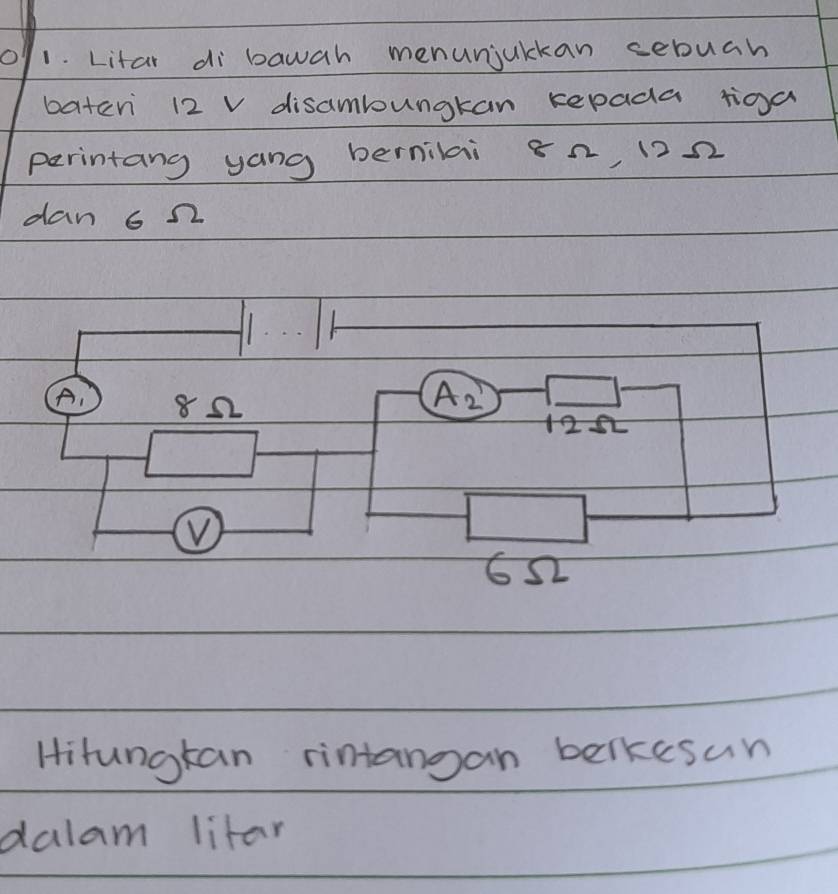 1. Litar di bawah menunjukkan sebuah
bateri 12 V disambungkan kepada tiga
perintang yang bernilai 8 Ω, 12 Ω
dan 6 Ω
A₁
8 Ω
A₂
12 Ω
V
6 Ω
Hitungkan rintangan berkesan
dalam litar